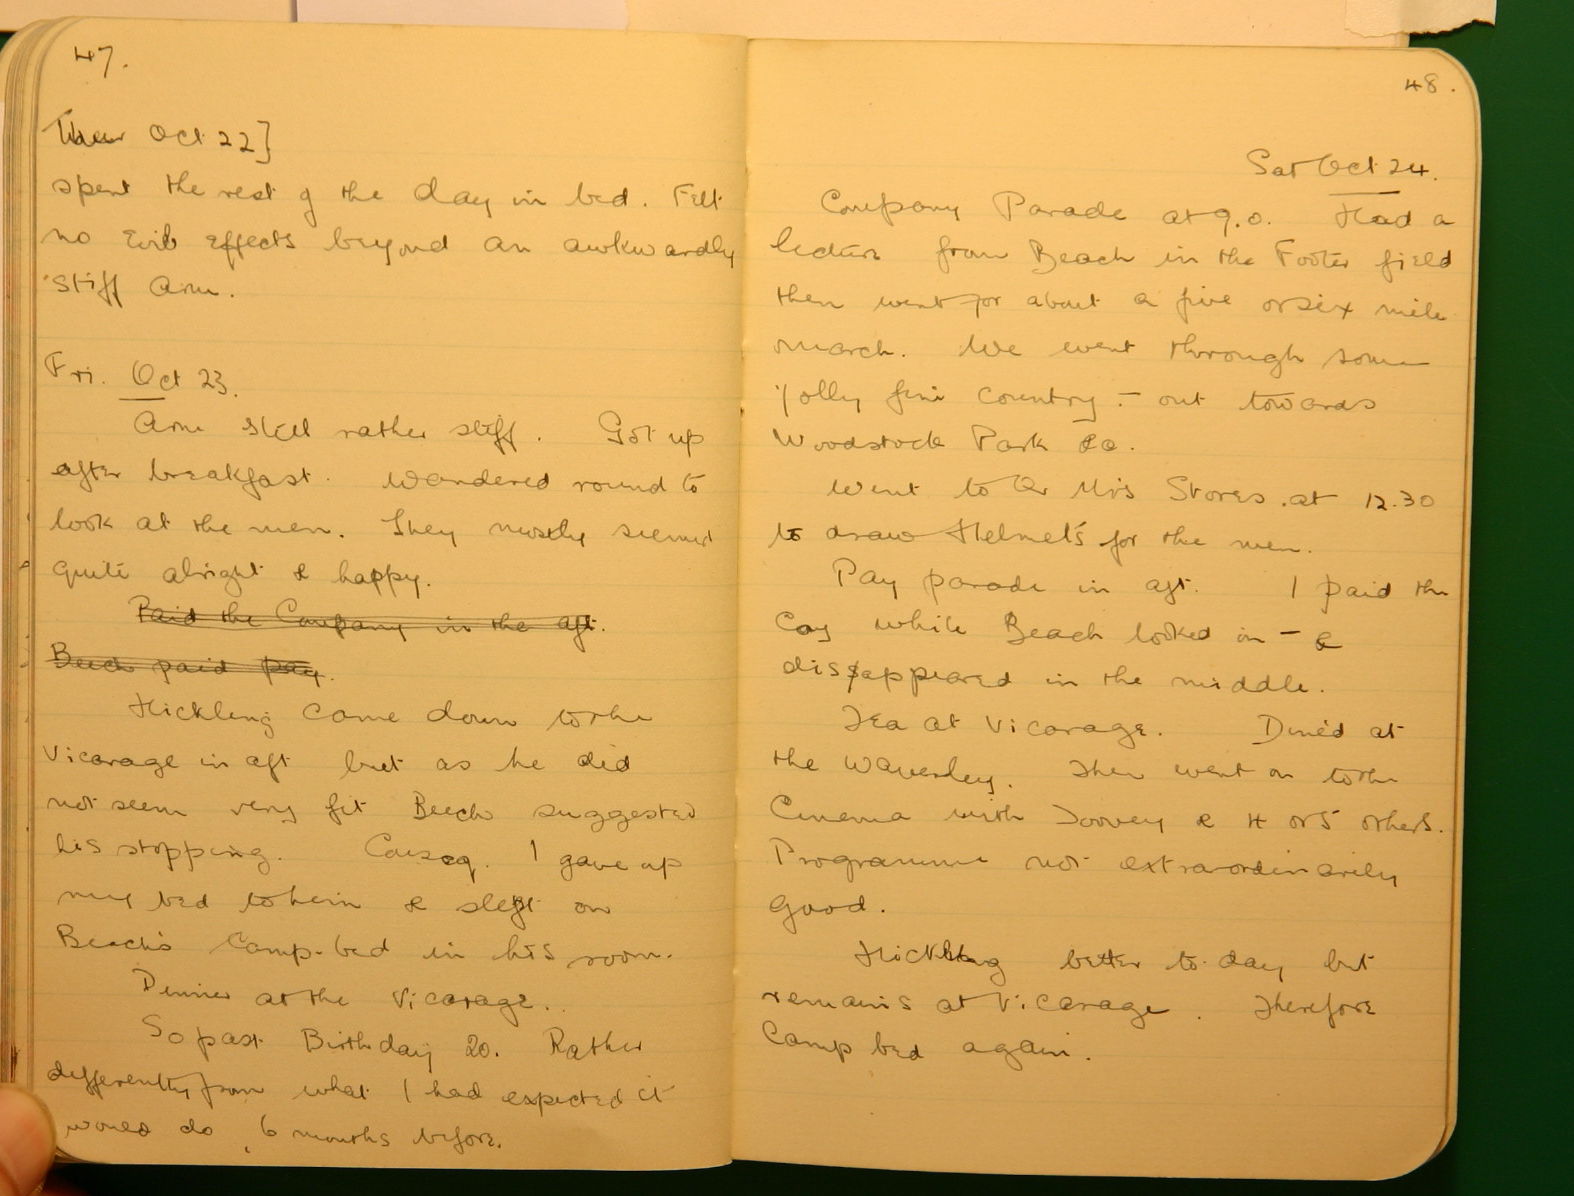 47.
Thur Oct 22]
spent the rest of the day in bed. Felt
no Evil Effects beyond an awkwardly
stiff Arm.
Fri. Oct 23.
Arm still rather stiff. Got up
after breakfast. Wandered round to
look at the men. They mostly seemed
quite alright & happy.
Paid the Company in the aft.
Beech paid pay.
Hickling came down to the
Vicarage in aft but as he did
not seem very fit Beech suggested
his stopping. Conseq. I gave up
my bed to him & slept on
Beach's Camp-bed in his room.
Dinner at the Vicarage.
So past Birthday 20. Rather
differently from what I had expected it
would do, 6 months before.
48.
Sat Oct 24.
Company Parade at 9.0. Had a
lecture from Beach in the Footer field
then went for about a five or six mile
march. We went through some
jolly fine country - out towards
Woodstock Park &c.
Went to Qr Mrs Stores at 12.30
to draw Helmets for the men.
Pay parade in aft. I paid the
Coy while Beach looked in - &
disappeared in the middle.
Tea at Vicarage. Dined at
the Waverley. Then went on to the
Cinema with & 4 or 5 others.
Programme not extraordinarily
good.
Hickling better to-day but
remains at Vicarage. Therefore
Camp bed again.